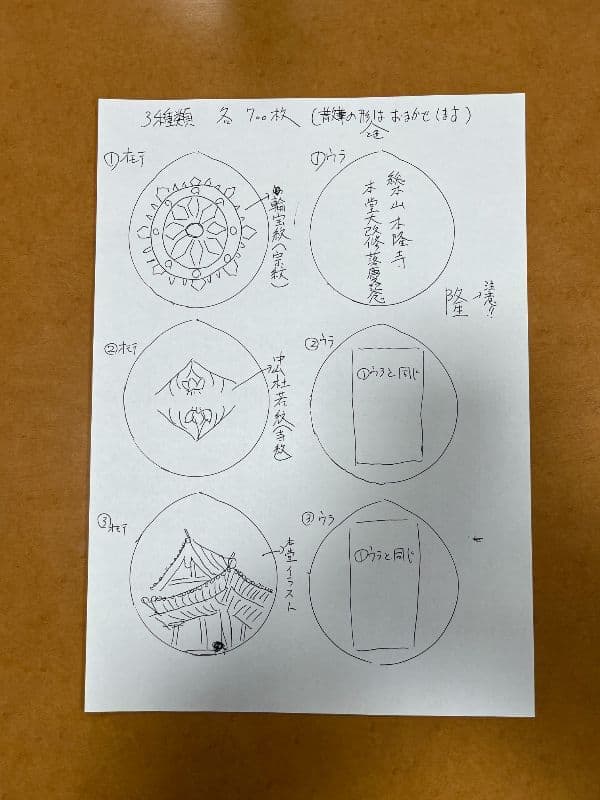 3種類 各 700枚 (散華の形はおまかせします)
①オモテ
輪宝紋(宗紋)
①ウラ
総本山本隆寺
本堂大改修落慶記念
隆→注意!!
②オモテ
杜若紋(寺紋)
②ウラ
①ウラと同じ
③オモテ
本堂イラスト
③ウラ
①ウラと同じ